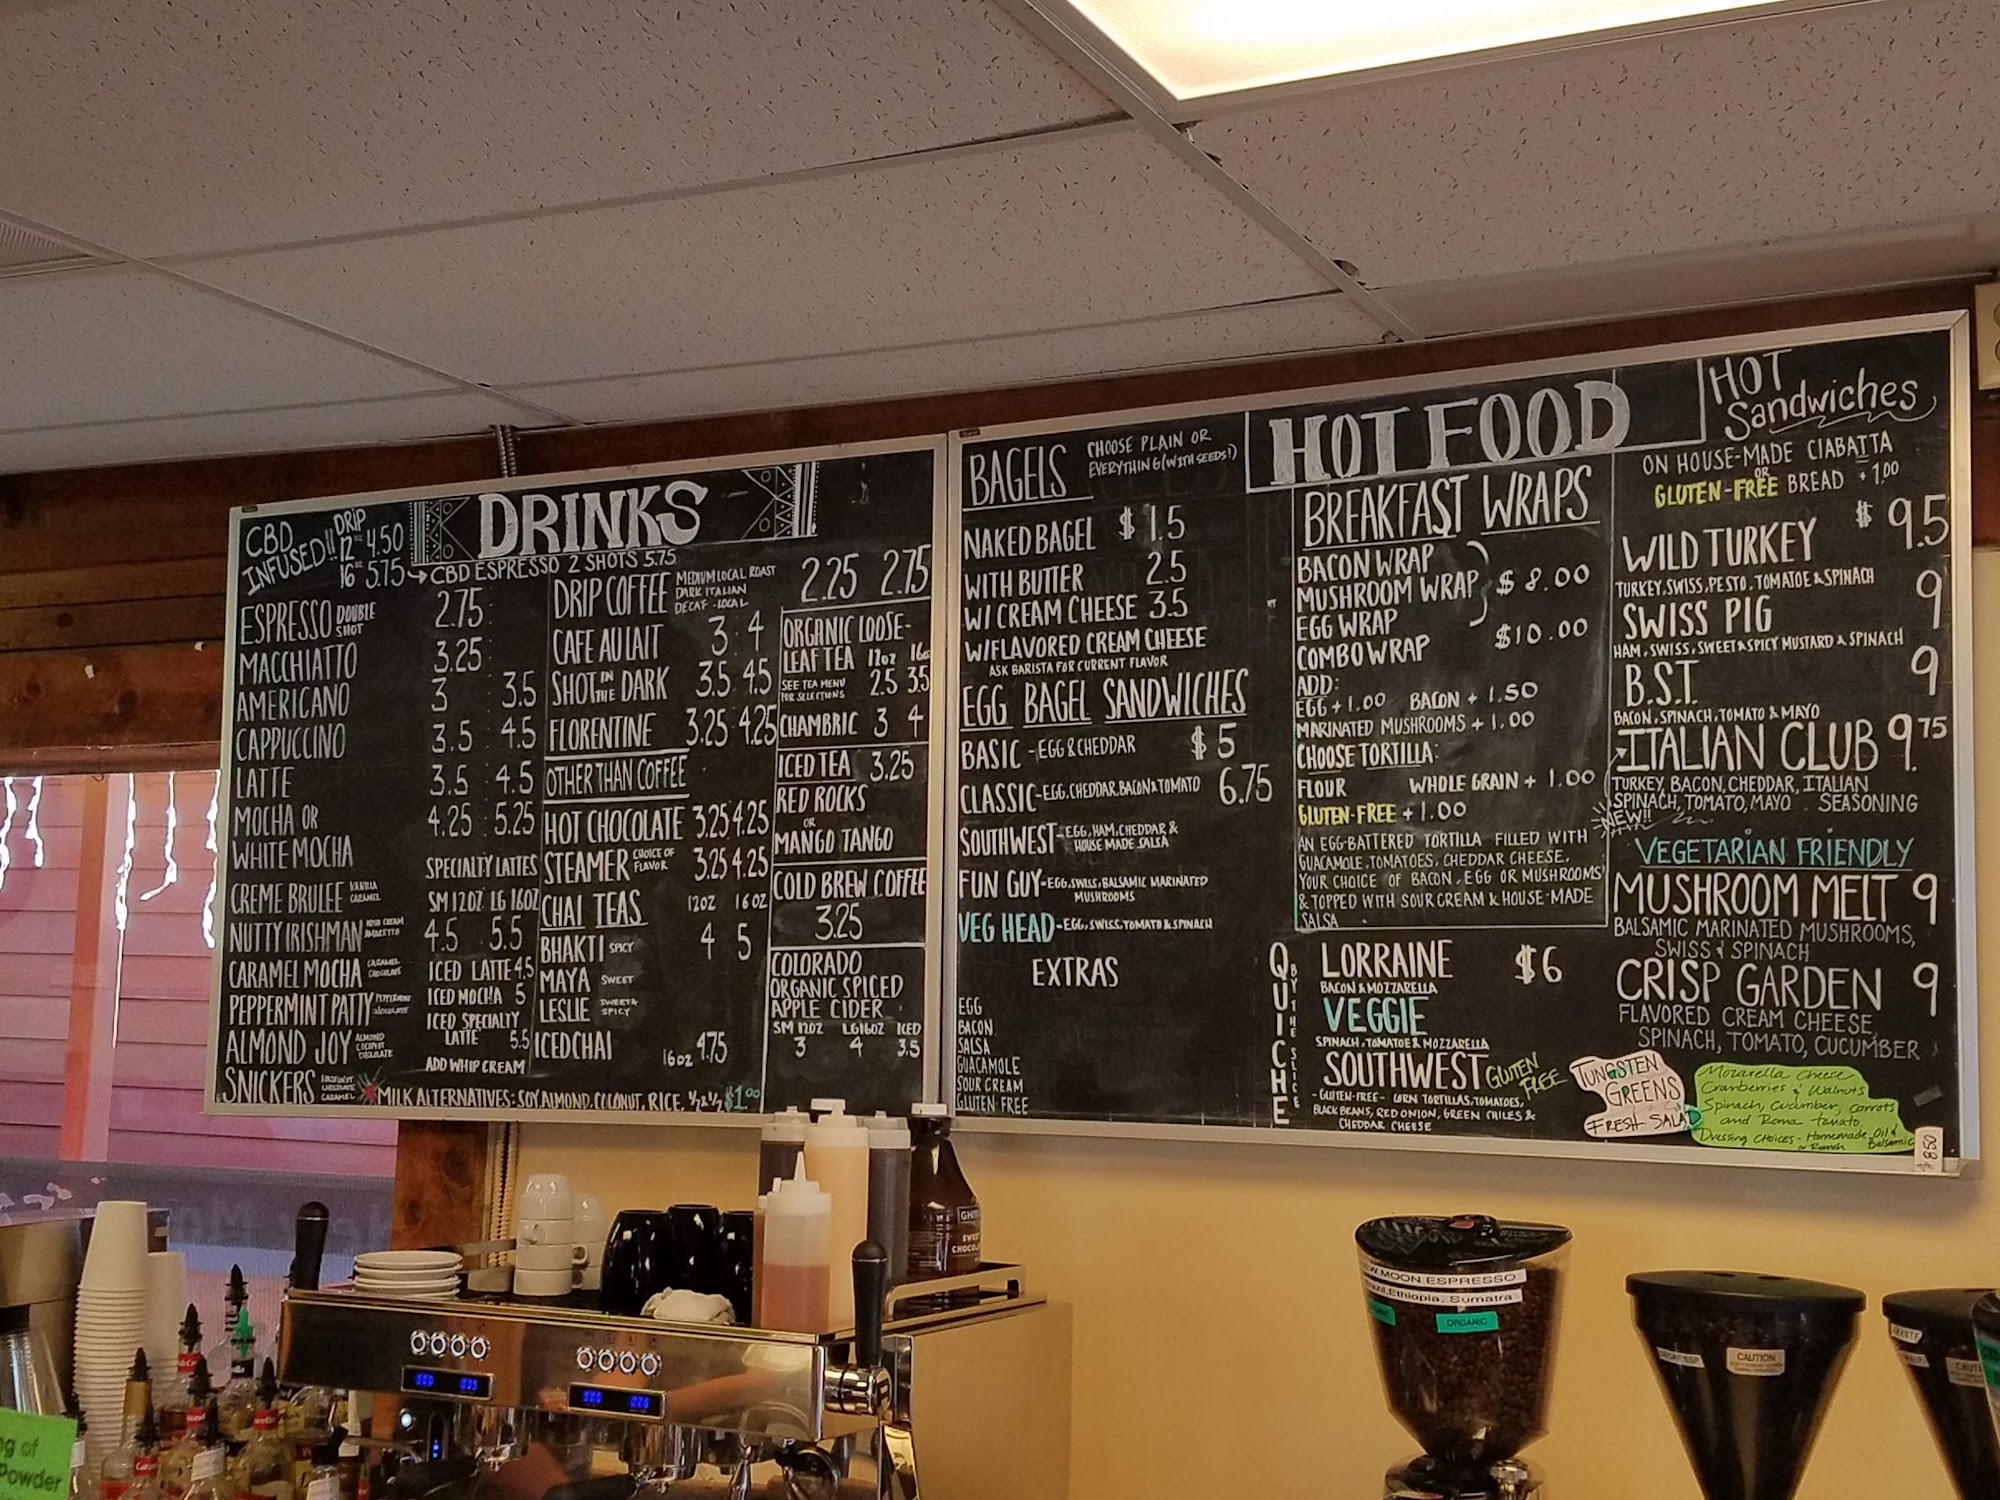 CBD
INFUSED!!
DRIP
12oz 4.50
16oz 5.75
DRINKS
CBD ESPRESSO 2 SHOTS 5.75
ESPRESSO DOUBLE SHOT 2.75
MACCHIATTO 3.25
AMERICANO 3 3.5
CAPPUCCINO 3.5 4.5
LATTE 3.5 4.5
MOCHA OR 4.25 5.25
WHITE MOCHA
SPECIALTY LATTES
CREME BRULEE VANILLA CARAMEL
SM 12OZ LG 16OZ
NUTTY IRISHMAN IRISH CREAM AMARETTO
4.5 5.5
CARAMEL MOCHA CARAMEL CHOCOLATE
ICED LATTE 4.5
PEPPERMINT PATTY PEPPERMINT CHOCOLATE
ICED MOCHA 5
ALMOND JOY ALMOND COCONUT CHOCOLATE
ICED SPECIALTY
LATTE 5.5
SNICKERS HAZELNUT CHOCOLATE CARAMEL
ADD WHIP CREAM
MILK ALTERNATIVES: SOY, ALMOND, COCONUT, RICE, 1/2 & 1/2 $1.00
DRIP COFFEE MEDIUM LOCAL ROAST 2.25 2.75
DARK ITALIAN
DECAF - LOCAL
CAFE AU LAIT 3 4
SHOT IN THE DARK 3.5 4.5
FLORENTINE 3.25 4.25
OTHER THAN COFFEE
HOT CHOCOLATE 3.25 4.25
STEAMER CHOICE OF FLAVOR 3.25 4.25
CHAI TEAS 12OZ 16OZ
BHAKTI SPICY 4 5
MAYA SWEET
LESLIE SWEET & SPICY
ICED CHAI 16oz 4.75
ORGANIC LOOSE-
LEAF TEA 12oz 16oz
SEE TEA MENU 2.5 3.5
FOR SELECTIONS
CHAMBRIC 3 4
ICED TEA 3.25
RED ROCKS
OR
MANGO TANGO
COLD BREW COFFEE
3.25
COLORADO
ORGANIC SPICED
APPLE CIDER
SM 12OZ LG 16OZ ICED
3 4 3.5
BAGELS CHOOSE PLAIN OR
EVERYTHING (WITH SEEDS!)
NAKED BAGEL $1.5
WITH BUTTER 2.5
W/ CREAM CHEESE 3.5
W/FLAVORED CREAM CHEESE
ASK BARISTA FOR CURRENT FLAVOR
EGG BAGEL SANDWICHES
BASIC - EGG & CHEDDAR $5
CLASSIC - EGG, CHEDDAR, BACON & TOMATO 6.75
SOUTHWEST - EGG, HAM, CHEDDAR &
HOUSE MADE SALSA
FUN GUY - EGG, SWISS, BALSAMIC MARINATED
MUSHROOMS
VEG HEAD - EGG, SWISS, TOMATO & SPINACH
EXTRAS
EGG
BACON
SALSA
GUACAMOLE
SOUR CREAM
GLUTEN-FREE
HOT FOOD
BREAKFAST WRAPS
BACON WRAP
MUSHROOM WRAP $8.00
EGG WRAP
COMBO WRAP $10.00
ADD:
EGG +1.00 BACON +1.50
MARINATED MUSHROOMS +1.00
CHOOSE TORTILLA:
FLOUR WHOLE GRAIN +1.00
GLUTEN-FREE +1.00
AN EGG-BATTERED TORTILLA FILLED WITH
GUACAMOLE, TOMATOES, CHEDDAR CHEESE,
YOUR CHOICE OF BACON, EGG OR MUSHROOMS
& TOPPED WITH SOUR CREAM & HOUSE-MADE
SALSA
QUICHE
BY THE SLICE
LORRAINE $6
BACON & MOZZARELLA
VEGGIE
SPINACH, TOMATOE & MOZZARELLA
SOUTHWEST GLUTEN FREE
- GLUTEN-FREE - CORN TORTILLAS, TOMATOES,
BLACK BEANS, RED ONION, GREEN CHILES &
CHEDDAR CHEESE
HOT
Sandwiches
ON HOUSE-MADE CIABATTA
OR
GLUTEN-FREE BREAD +1.00
WILD TURKEY $9.5
TURKEY, SWISS, PESTO, TOMATOE & SPINACH
SWISS PIG 9
HAM, SWISS, SWEET & SPICY MUSTARD & SPINACH
B.S.T. 9
BACON, SPINACH, TOMATO & MAYO
ITALIAN CLUB 9.75
TURKEY, BACON, CHEDDAR, ITALIAN
SPINACH, TOMATO, MAYO. SEASONING
NEW!!
VEGETARIAN FRIENDLY
MUSHROOM MELT 9
BALSAMIC MARINATED MUSHROOMS,
SWISS & SPINACH
CRISP GARDEN 9
FLAVORED CREAM CHEESE,
SPINACH, TOMATO, CUCUMBER
TUNGSTEN
GREENS
FRESH SALAD
Mozarella cheese
Cranberries & Walnuts
Spinach, Cucumber, carrots
and Roma tomato
Dressing choices - Homemade Oil & Balsamic
or Ranch
$8.50
SWEET
CHOCOLATE
MOON ESPRESSO
Ethiopia, Sumatra
ORGANIC
CAUTION
ng of
Powder